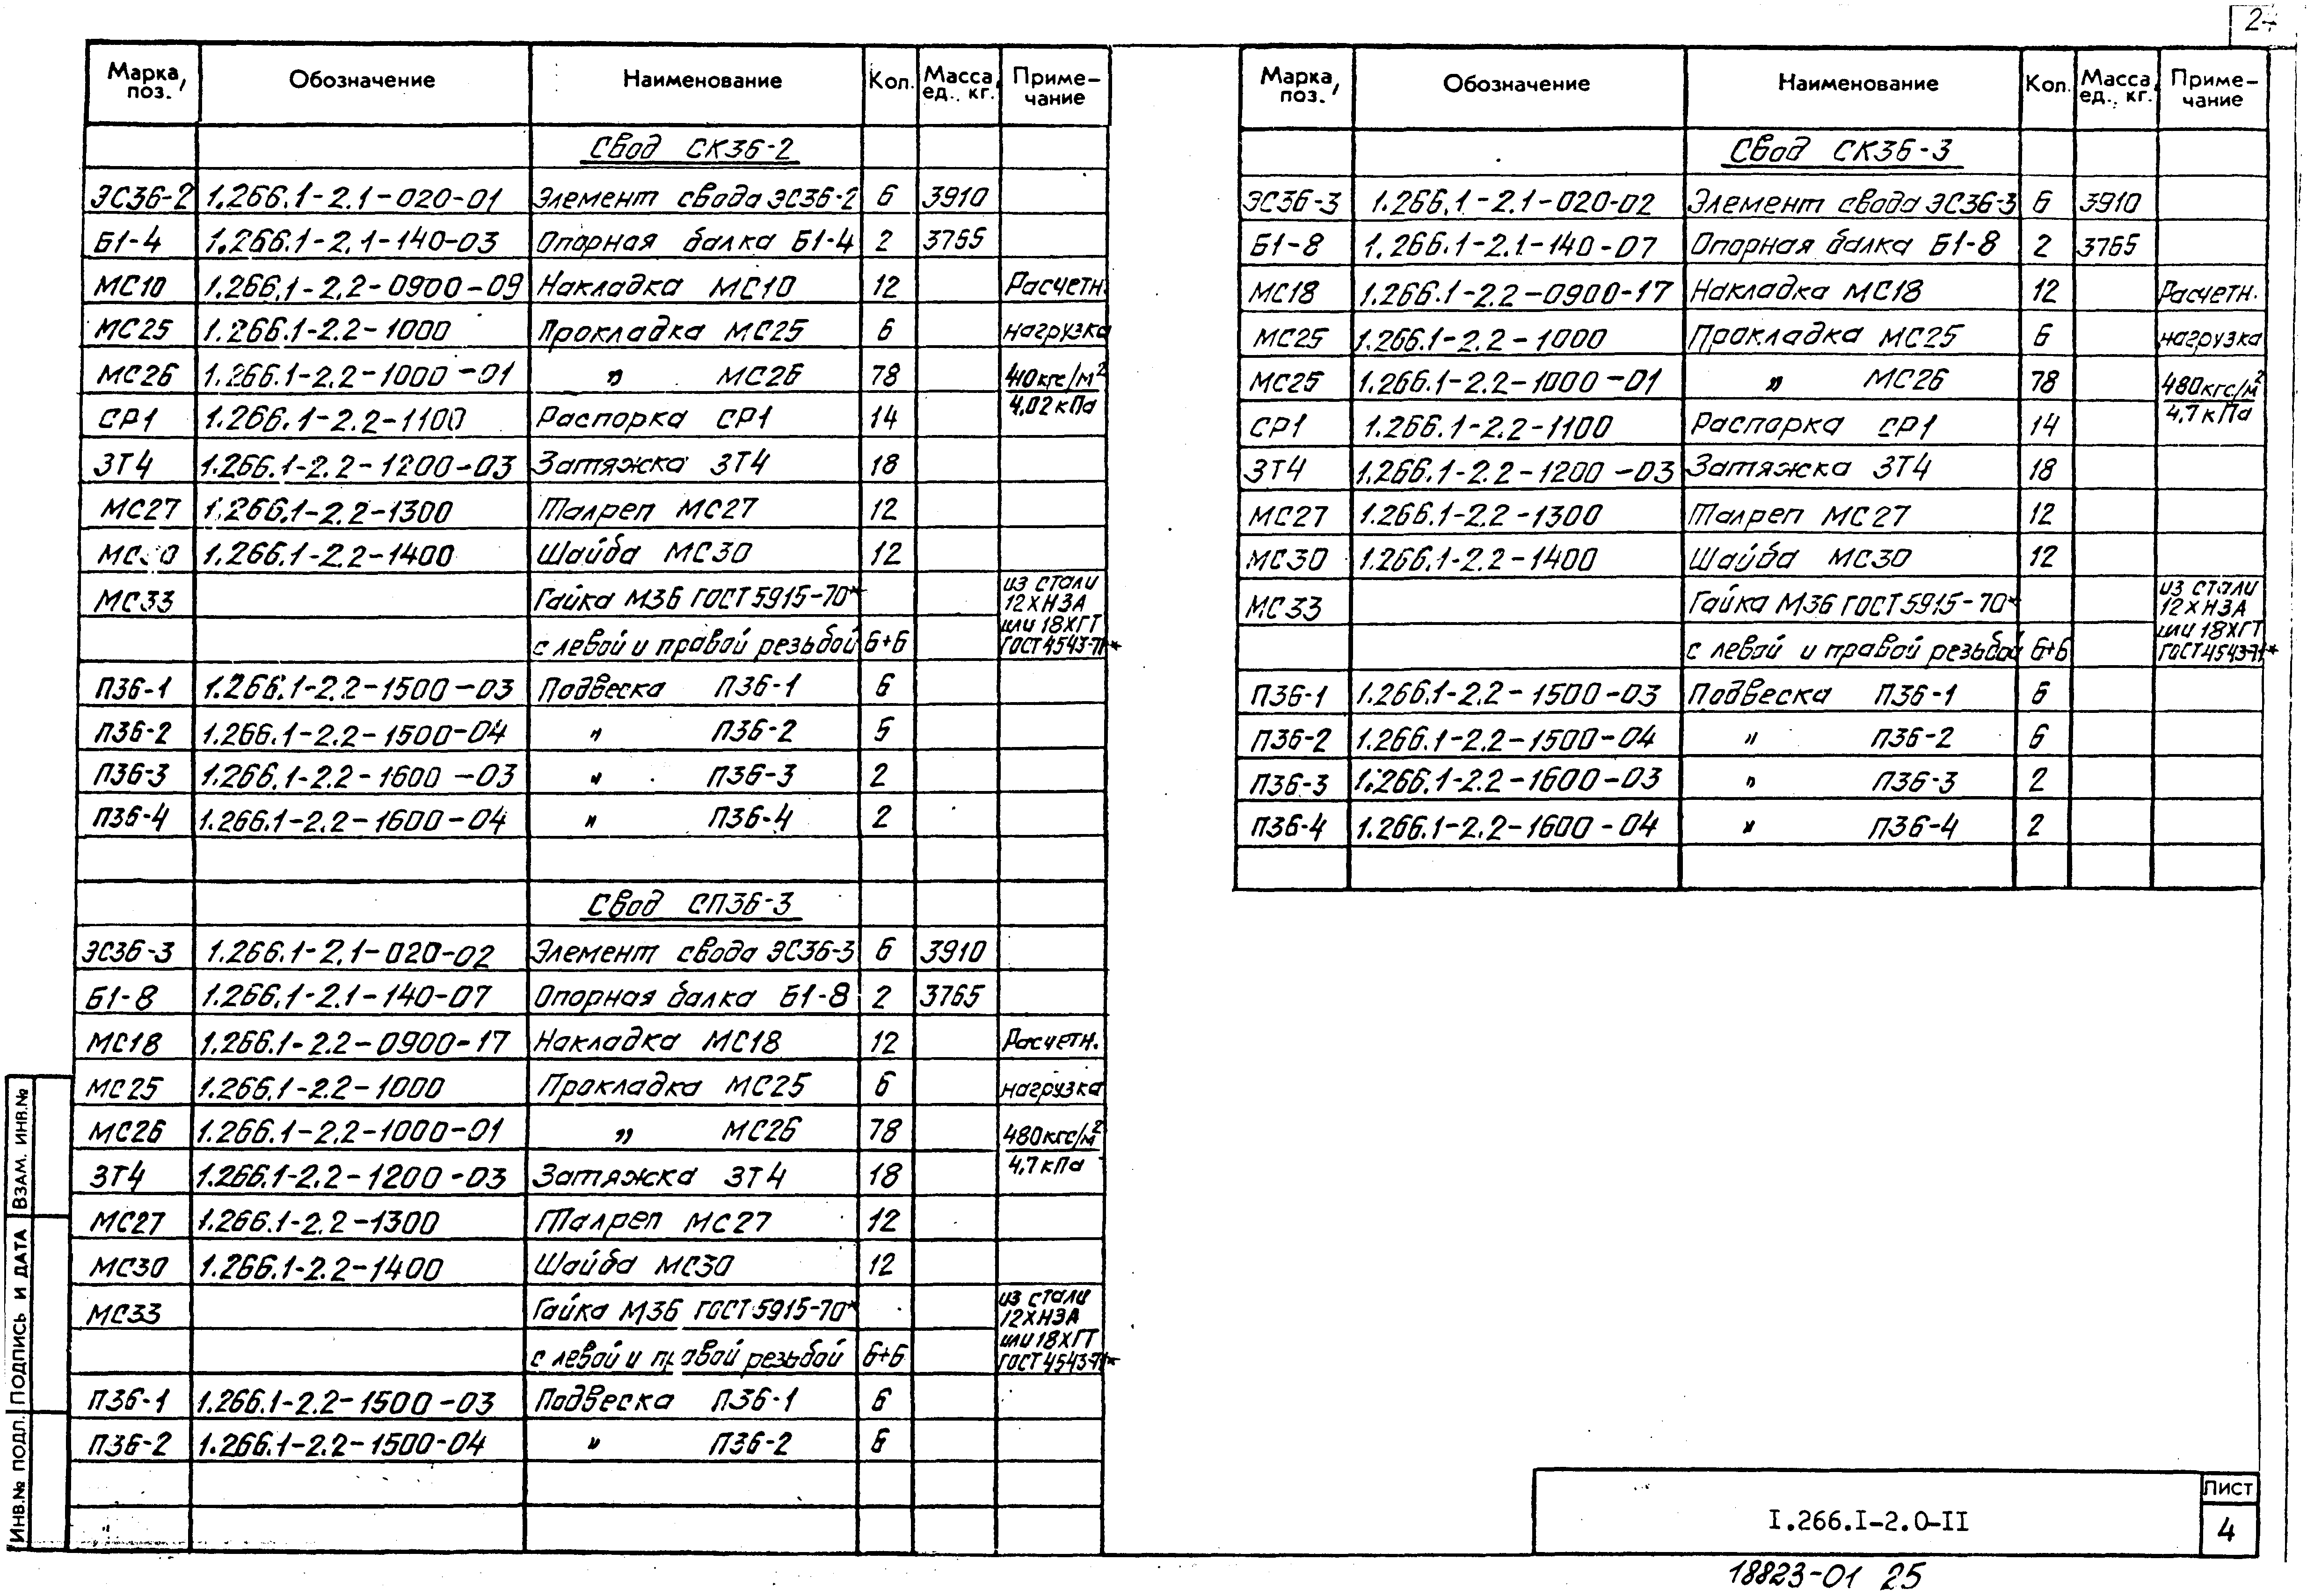 2-
Марка, поз. Обозначение Наименование Кол. Масса ед., кг. Примечание
Свод СК36-2
ЭС36-2 1.266.1-2.1-020-01 Элемент свода ЭС36-2 6 3910
Б1-4 1.266.1-2.1-140-03 Опорная балка Б1-4 2 3765
МС10 1.266.1-2.2-0900-09 Накладка МС10 12 Расчетн.
МС25 1.266.1-2.2-1000 Прокладка МС25 6 нагрузка
МС26 1.266.1-2.2-1000-01 " МС26 78 410кгс/м²
СР1 1.266.1-2.2-1100 Распорка СР1 14 4,02кПа
ЗТ4 1.266.1-2.2-1200-03 Затяжка ЗТ4 18
МС27 1.266.1-2.2-1300 Талреп МС27 12
МС30 1.266.1-2.2-1400 Шайба МС30 12
МС33 Гайка М36 ГОСТ 5915-70* из стали 12ХН3А
с левой и правой резьбой 6+6 или 18ХГТ ГОСТ 4543-71*
П36-1 1.266.1-2.2-1500-03 Подвеска П36-1 6
П36-2 1.266.1-2.2-1500-04 " П36-2 5
П36-3 1.266.1-2.2-1600-03 " П36-3 2
П36-4 1.266.1-2.2-1600-04 " П36-4 2
Свод СП36-3
ЭС36-3 1.266.1-2.1-020-02 Элемент свода ЭС36-3 6 3910
Б1-8 1.266.1-2.1-140-07 Опорная балка Б1-8 2 3765
МС18 1.266.1-2.2-0900-17 Накладка МС18 12 Расчетн.
МС25 1.266.1-2.2-1000 Прокладка МС25 6 нагрузка
МС26 1.266.1-2.2-1000-01 " МС26 78 480кгс/м²
ЗТ4 1.266.1-2.2-1200-03 Затяжка ЗТ4 18 4,7кПа
МС27 1.266.1-2.2-1300 Талреп МС27 12
МС30 1.266.1-2.2-1400 Шайба МС30 12
МС33 Гайка М36 ГОСТ 5915-70* из стали 12ХН3А
с левой и правой резьбой 6+6 или 18ХГТ ГОСТ 4543-71*
П36-1 1.266.1-2.2-1500-03 Подвеска П36-1 6
П36-2 1.266.1-2.2-1500-04 " П36-2 6
Марка, поз. Обозначение Наименование Кол. Масса ед., кг. Примечание
Свод СК36-3
ЭС36-3 1.266.1-2.1-020-02 Элемент свода ЭС36-3 6 3910
Б1-8 1.266.1-2.1-140-07 Опорная балка Б1-8 2 3765
МС18 1.266.1-2.2-0900-17 Накладка МС18 12 Расчетн.
МС25 1.266.1-2.2-1000 Прокладка МС25 6 нагрузка
МС25 1.266.1-2.2-1000-01 " МС26 78 480кгс/м²
СР1 1.266.1-2.2-1100 Распорка СР1 14 4,7кПа
ЗТ4 1.266.1-2.2-1200-03 Затяжка ЗТ4 18
МС27 1.266.1-2.2-1300 Талреп МС27 12
МС30 1.266.1-2.2-1400 Шайба МС30 12
МС33 Гайка М36 ГОСТ 5915-70* из стали 12ХН3А
с левой и правой резьбой 6+6 или 18ХГТ ГОСТ 4543-71*
П36-1 1.266.1-2.2-1500-03 Подвеска П36-1 6
П36-2 1.266.1-2.2-1500-04 " П36-2 6
П36-3 1.266.1-2.2-1600-03 " П36-3 2
П36-4 1.266.1-2.2-1600-04 " П36-4 2
Инв.№ подл. Подпись и дата Взам. инв.№
I.266.I-2.0-II
Лист
4
18823-01 25